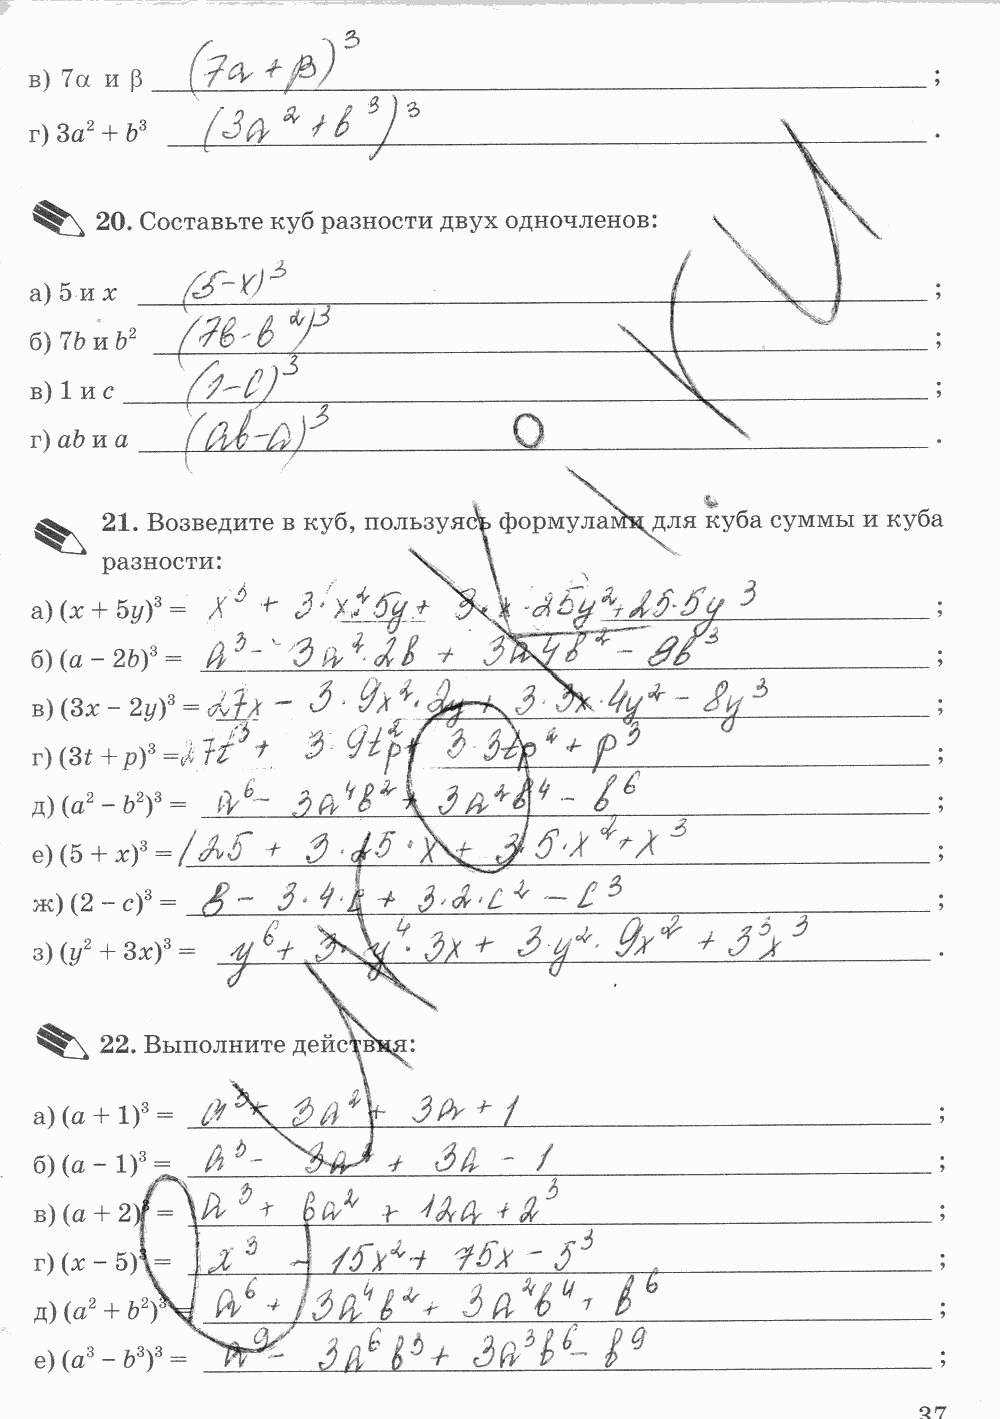 в) 7α и β (7a + β)³ ;
г) 3a² + b³ (3a² + b³)³ .
20. Составьте куб разности двух одночленов:
а) 5 и x (5 - x)³ ;
б) 7b и b² (7b - b²)³ ;
в) 1 и c (1 - c)³ ;
г) ab и a (ab - a)³ .
21. Возведите в куб, пользуясь формулами для куба суммы и куба
разности:
а) (x + 5y)³ = x³ + 3·x²·5y + 3·x·25y² + 25·5y³ ;
б) (a − 2b)³ = a³ - 3a²·2b + 3a4b² - 8b³ ;
в) (3x − 2y)³ = 27x - 3·9x²·2y + 3·3x·4y² - 8y³ ;
г) (3t + p)³ = 27t³ + 3·9t²p + 3·3tp² + p³ ;
д) (a² − b²)³ = a⁶ - 3a⁴b² + 3a²b⁴ - b⁶ ;
е) (5 + x)³ = 125 + 3·25·x + 3·5·x² + x³ ;
ж) (2 − c)³ = 8 - 3·4·c + 3·2·c² - c³ ;
з) (y² + 3x)³ = y⁶ + 3·y⁴·3x + 3·y²·9x² + 3³x³ .
22. Выполните действия:
а) (a + 1)³ = a³ + 3a² + 3a + 1 ;
б) (a − 1)³ = a³ - 3a² + 3a - 1 ;
в) (a + 2)³ = a³ + 6a² + 12a + 2³ ;
г) (x − 5)³ = x³ - 15x² + 75x - 5³ ;
д) (a² + b²)³ = a⁶ + 3a⁴b² + 3a²b⁴ + b⁶ ;
е) (a³ − b³)³ = a⁹ - 3a⁶b³ + 3a³b⁶ - b⁹ ;
37